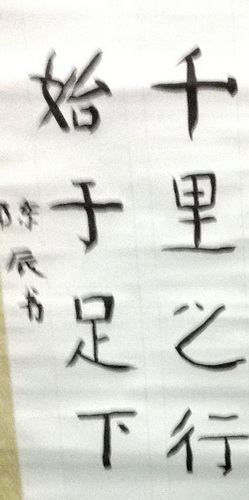 千里之行
始于足下
辰书